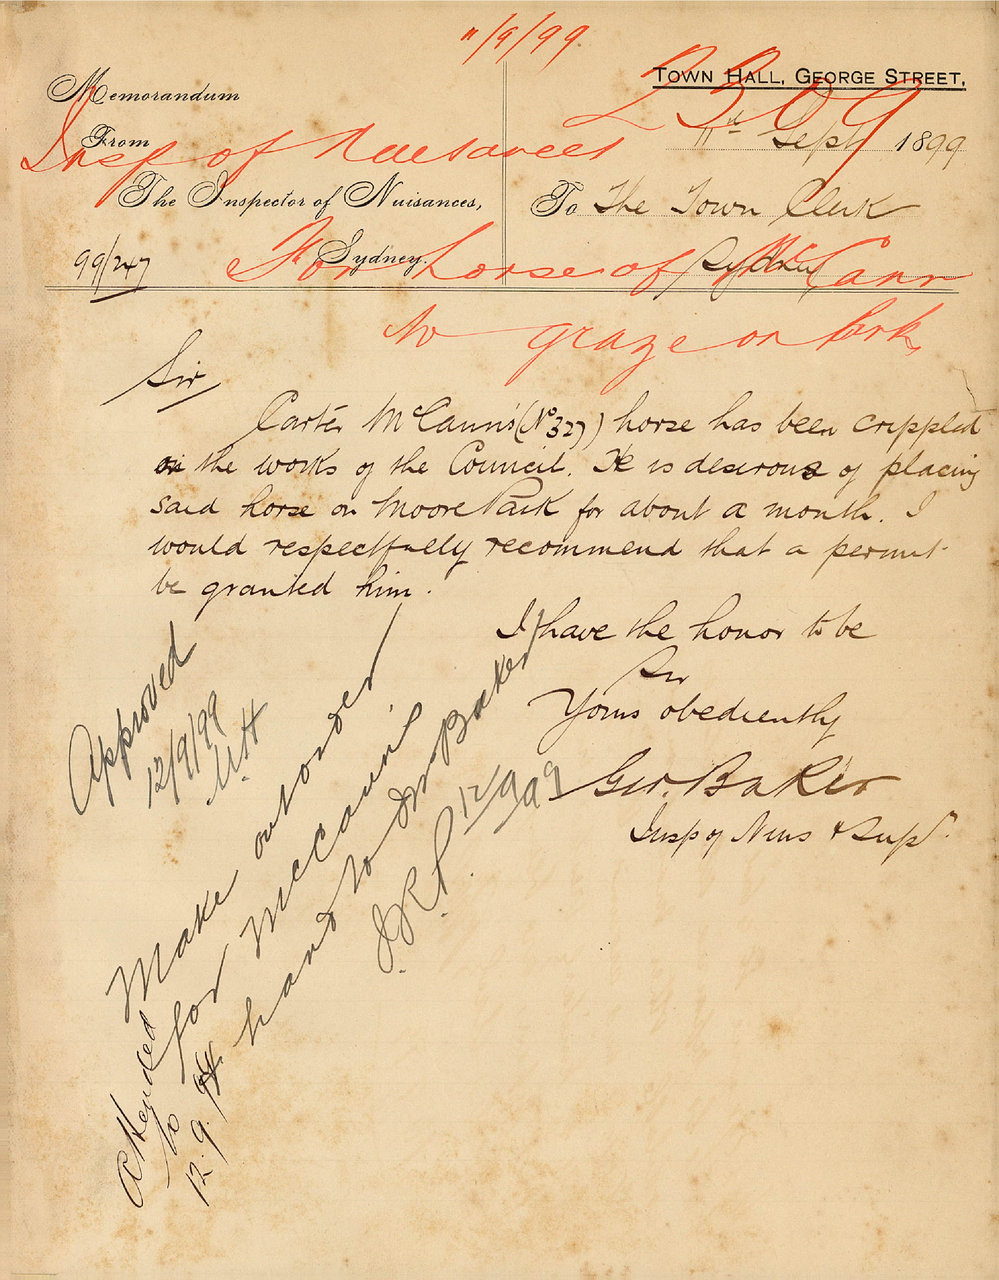 11/9/99
2309
Memorandum
From
Insp of Nuisances
The Inspector of Nuisances,
Sydney.
99/247
TOWN HALL, GEORGE STREET,
11th Sept 1899
To The Town Clerk
Sydney
For horse of McCann
to graze on Park
Sir
Carter McCann's (No 327) horse has been crippled
on the works of the Council. He is desirous of placing
said horse on Moore Park for about a month. I
would respectfully recommend that a permit
be granted him.
I have the honor to be
Sir
Yours obediently
Geo. Baker
Insp of Nuis & Supt.
Approved
12/9/99
Make out order
for McCann &
hand to Mr Baker
12/9/99
Attended
to
12.9.